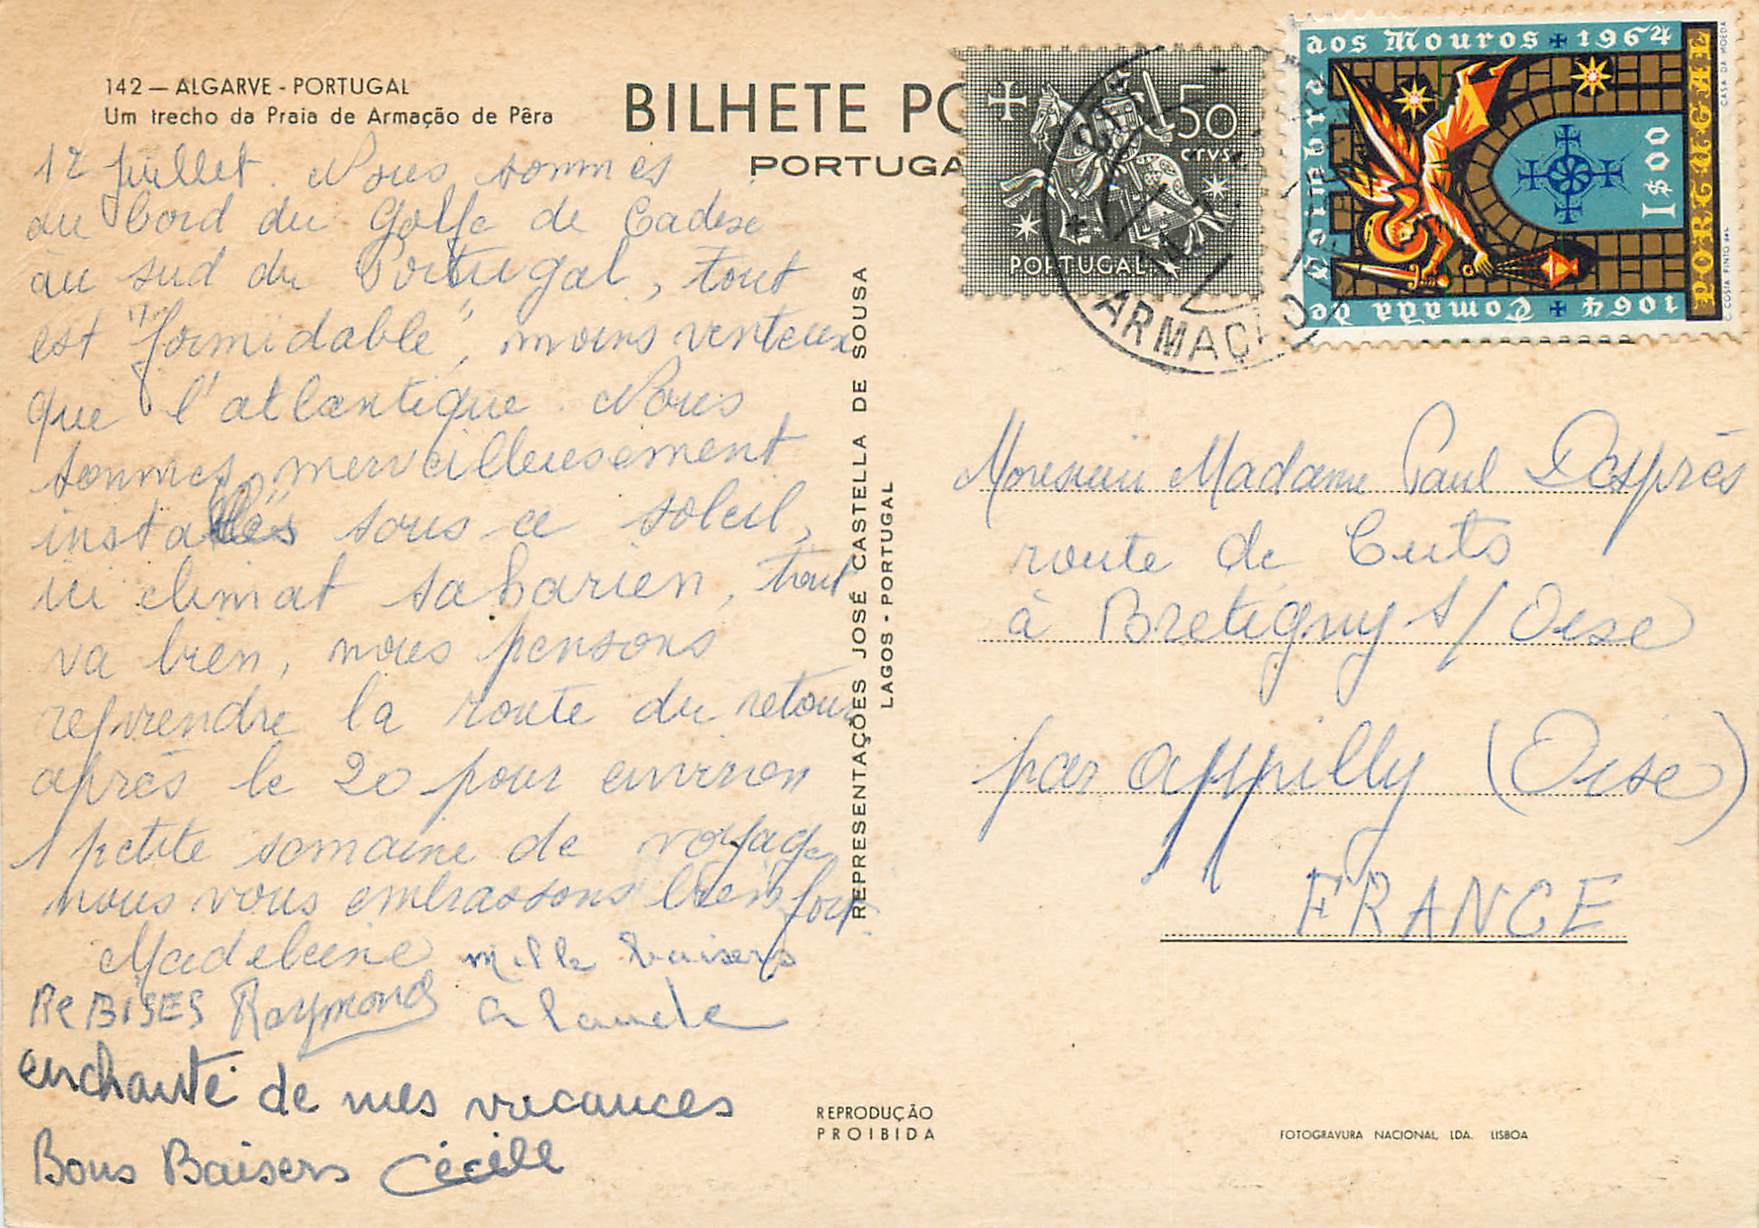 142 — ALGARVE - PORTUGAL
Um trecho da Praia de Armação de Pêra
BILHETE PO
PORTUGA
12 juillet. Nous sommes
au bord du Golfe de Cadix
au sud du Portugal, tout
est "formidable", moins venteux
que l'atlantique. Nous
sommes merveilleusement
installés sous ce soleil,
ici climat saharien, tout
va bien, nous pensons
reprendre la route du retour
après le 20 pour environ
1 petite semaine de voyage
nous vous embrassons bien fort.
Madeleine mille baisers
Re BISES Raymond Claude
enchanté de mes vacances
Bons Baisers Cécile
REPRESENTAÇÕES JOSÉ CASTELLA DE SOUSA
LAGOS - PORTUGAL
50
CTVS
PORTUGAL
ARMAÇÃO
1064 Tomada de Coimbra aos Mouros 1964
1$00
PORTUGAL
C. COSTA PINTO del.
CASA DA MOEDA
Monsieur Madame Paul Desprès
route de Cuts
à Bretigny s/ Oise
par Appilly (Oise)
FRANCE
REPRODUÇÃO
PROIBIDA
FOTOGRAVURA NACIONAL, LDA. LISBOA